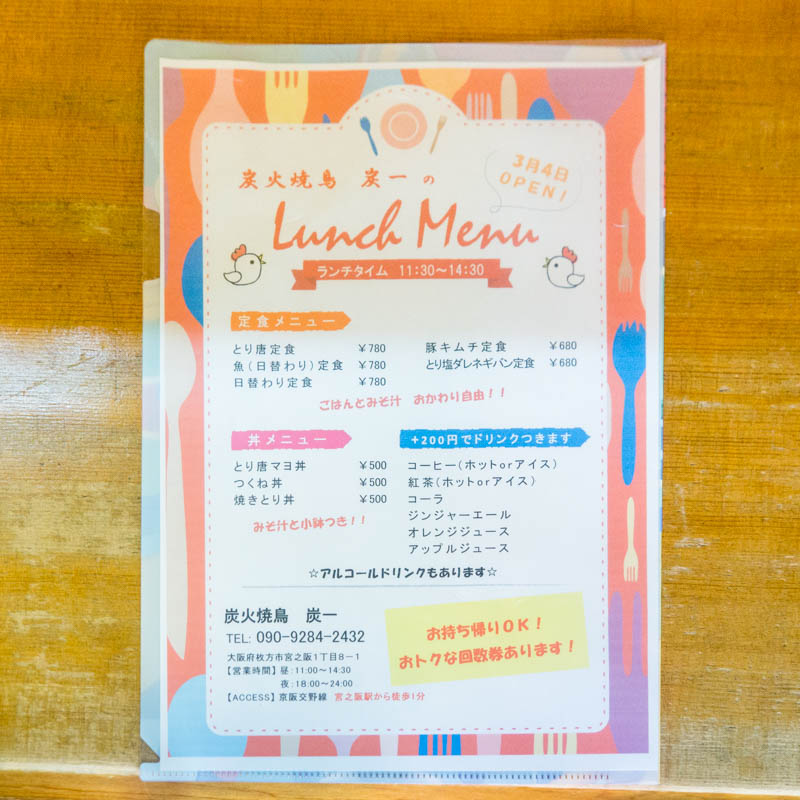 炭火焼鳥 炭一の
3月4日
OPEN!
Lunch Menu
ランチタイム 11:30〜14:30
定食メニュー
とり唐定食 ¥780
魚(日替わり)定食 ¥780
日替わり定食 ¥780
豚キムチ定食 ¥680
とり塩ダレネギバン定食 ¥680
ごはんとみそ汁 おかわり自由!!
丼メニュー
とり唐マヨ丼 ¥500
つくね丼 ¥500
焼きとり丼 ¥500
みそ汁と小鉢つき!!
+200円でドリンクつきます
コーヒー(ホットorアイス)
紅茶(ホットorアイス)
コーラ
ジンジャーエール
オレンジジュース
アップルジュース
☆アルコールドリンクもあります☆
炭火焼鳥 炭一
TEL: 090-9284-2432
大阪府枚方市宮之阪1丁目8−1
【営業時間】昼:11:00〜14:30
夜:18:00〜24:00
【ACCESS】京阪交野線 宮之阪駅から徒歩1分
お持ち帰りOK!
おトクな回数券あります!